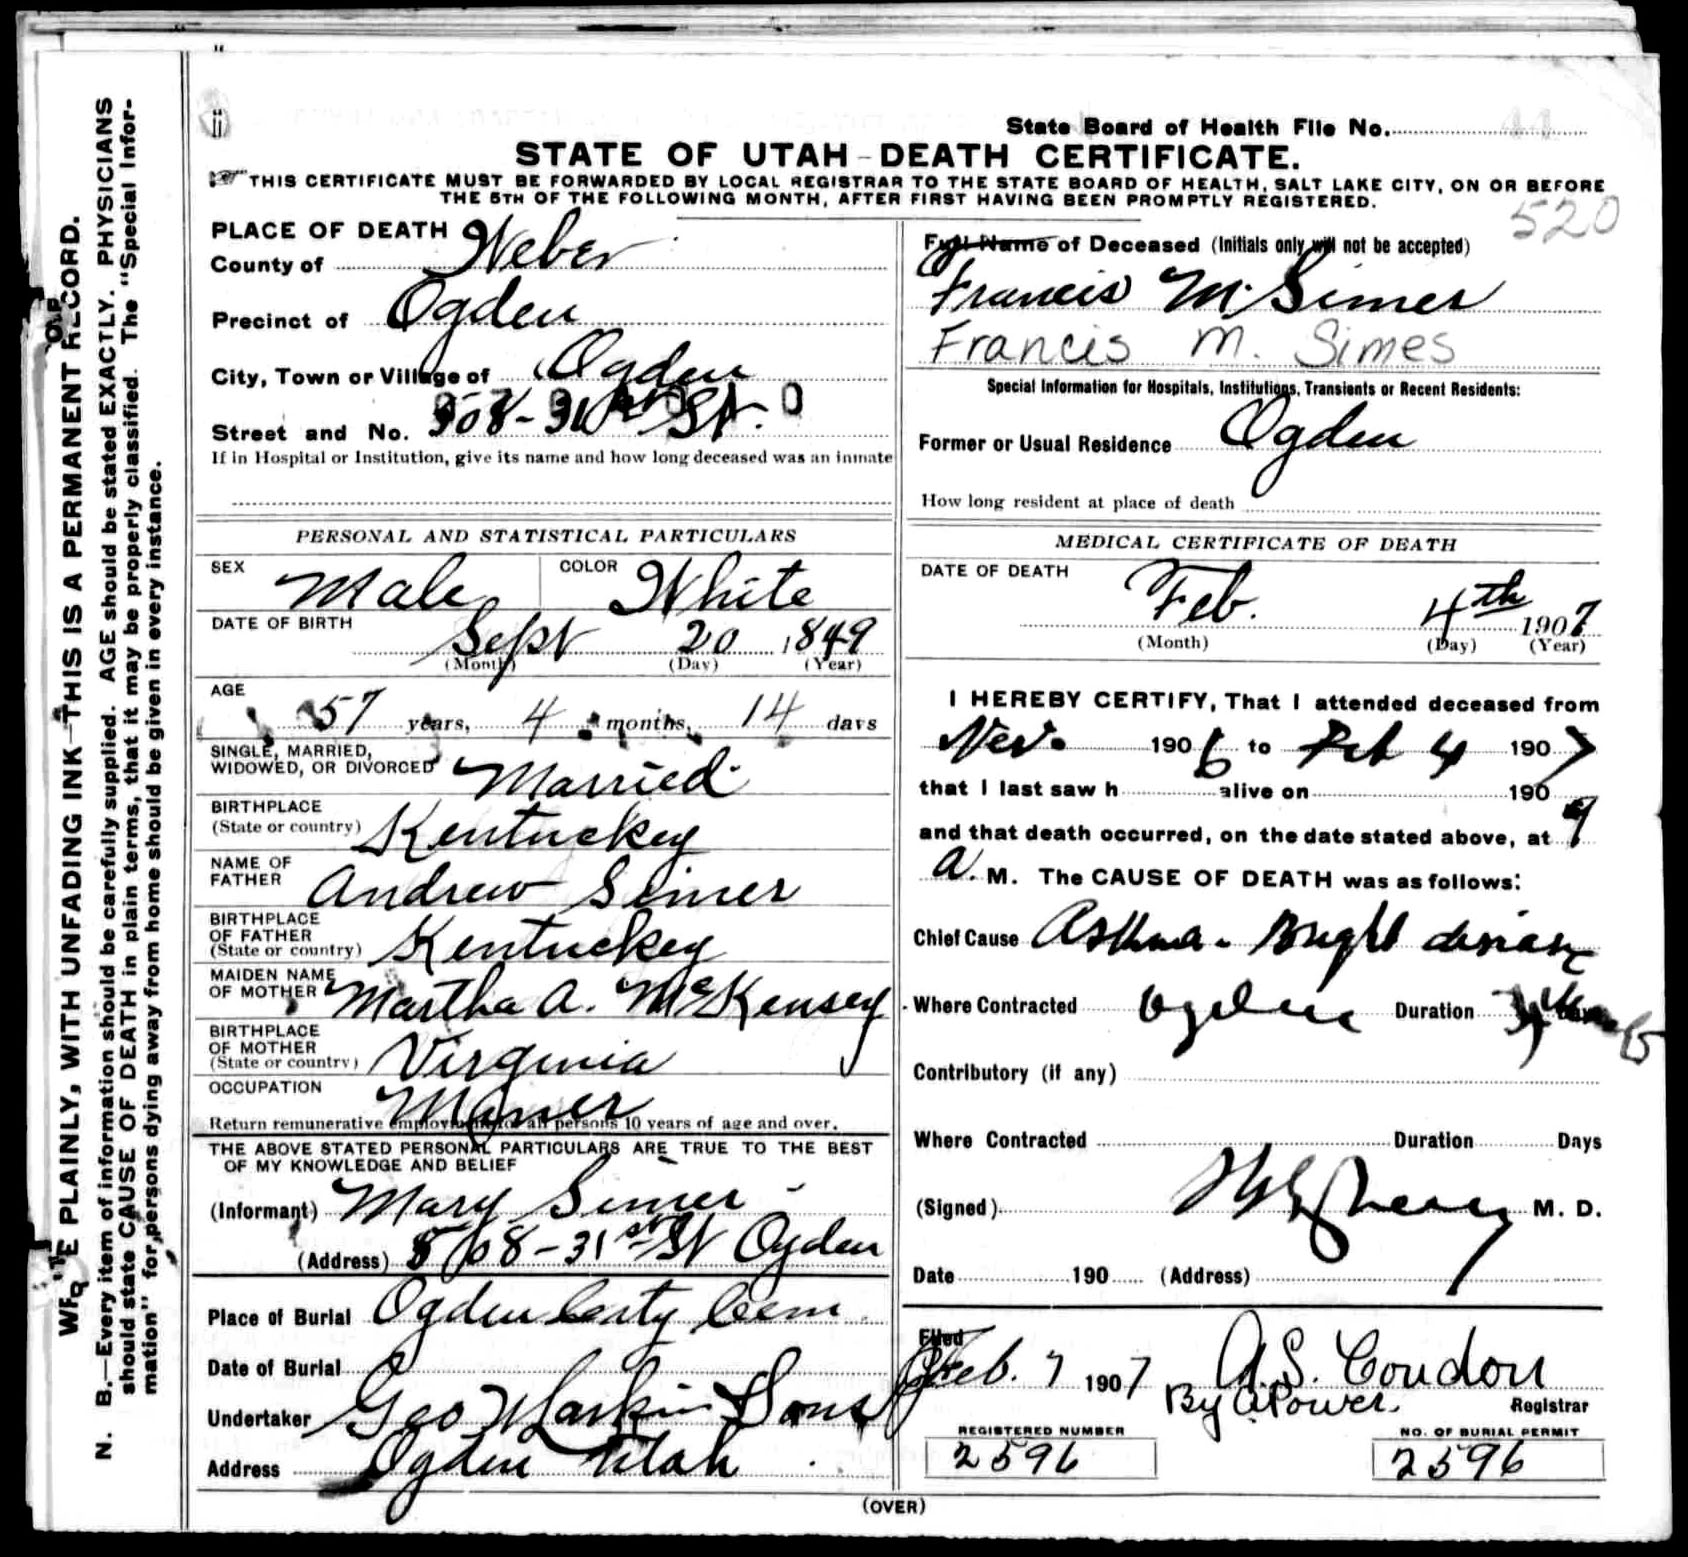 State Board of Health File No. 44
STATE OF UTAH - DEATH CERTIFICATE.
THIS CERTIFICATE MUST BE FORWARDED BY LOCAL REGISTRAR TO THE STATE BOARD OF HEALTH, SALT LAKE CITY, ON OR BEFORE
THE 5TH OF THE FOLLOWING MONTH, AFTER FIRST HAVING BEEN PROMPTLY REGISTERED.
520
PLACE OF DEATH
County of Weber
Precinct of Ogden
City, Town or Village of Ogden
Street and No. 508 - 31st St.
If in Hospital or Institution, give its name and how long deceased was an inmate
PERSONAL AND STATISTICAL PARTICULARS
SEX Male COLOR White
DATE OF BIRTH Sept 20 1849
(Month) (Day) (Year)
AGE 57 years, 4 months, 14 days
SINGLE, MARRIED,
WIDOWED, OR DIVORCED Married
BIRTHPLACE
(State or country) Kentuckey
NAME OF
FATHER Andrew Simer
BIRTHPLACE
OF FATHER
(State or country) Kentuckey
MAIDEN NAME
OF MOTHER Martha A. McKensey
BIRTHPLACE
OF MOTHER
(State or country) Virginia
OCCUPATION Miner
Return remunerative employment for all persons 10 years of age and over.
THE ABOVE STATED PERSONAL PARTICULARS ARE TRUE TO THE BEST
OF MY KNOWLEDGE AND BELIEF
(Informant) Mary Simer
(Address) 508 - 31st St Ogden
Place of Burial Ogden City Cem
Date of Burial
Undertaker Geo Larkin & Sons
Address Ogden Utah
Full Name of Deceased (Initials only will not be accepted)
Francis M. Simer
Francis M. Simes
Special Information for Hospitals, Institutions, Transients or Recent Residents:
Former or Usual Residence Ogden
How long resident at place of death
MEDICAL CERTIFICATE OF DEATH
DATE OF DEATH Feb. 4th 1907
(Month) (Day) (Year)
I HEREBY CERTIFY, That I attended deceased from
Nov. 1906 to Feb 4 1907
that I last saw h alive on 190
and that death occurred, on the date stated above, at 9
a. M. The CAUSE OF DEATH was as follows:
Chief Cause Asthma - Bright disease
Where Contracted Ogden Duration
Contributory (if any)
Where Contracted Duration Days
(Signed) M. D.
Date 190 (Address)
Filed
Feb. 7 1907 A.S. Condon
By A Power. Registrar
REGISTERED NUMBER
2596
NO. OF BURIAL PERMIT
2596
(OVER)
WRITE PLAINLY, WITH UNFADING INK—THIS IS A PERMANENT RECORD.
N. B.—Every item of information should be carefully supplied. AGE should be stated EXACTLY. PHYSICIANS
should state CAUSE OF DEATH in plain terms, that it may be properly classified. The "Special Infor-
mation" for persons dying away from home should be given in every instance.